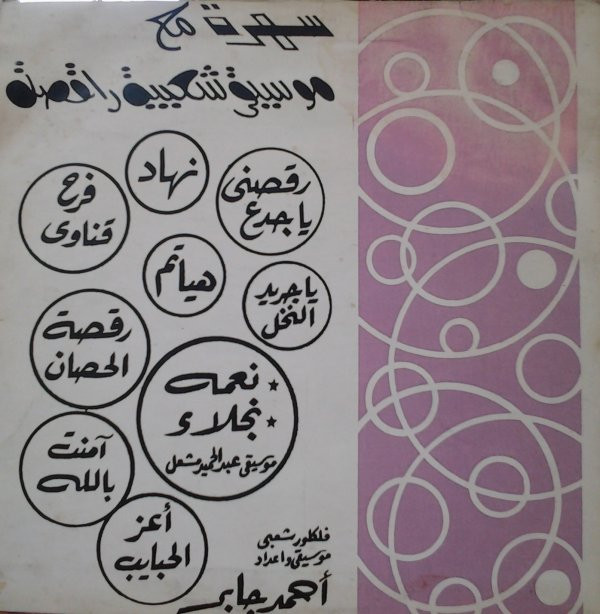 سهرة مع
موسيقى شعبية راقصة
نهاد
رقصنى
يا جدع
فرح
قناوى
هياتم
يا جريد
النخل
رقصة
الحصان
نعمه
نجلاء
موسيقى عبد الحميد مشعل
آمنت
بالله
أعز
الحبايب
فلكلور شعبى
موسيقى واعداد
أحمد جابر